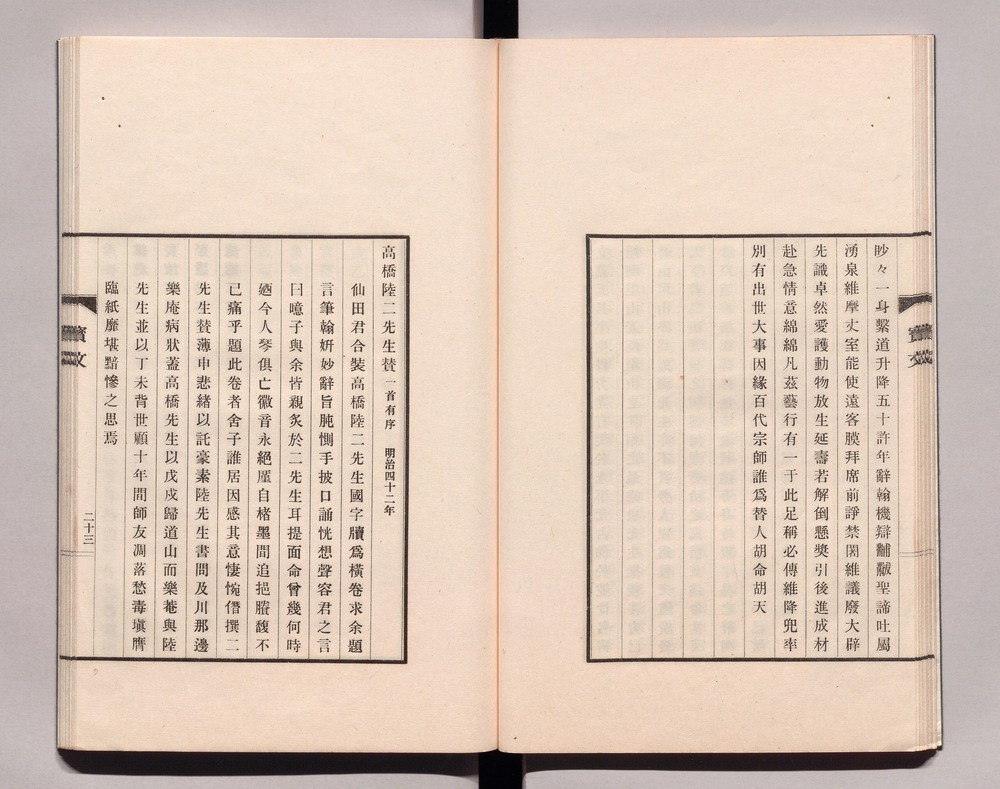 眇々一身繫道升降五十許年辭翰機辯黼黻聖諦吐屬
湧泉維摩丈室能使遠客膜拜席前諍禁圂維議廢大辟
先識卓然愛護動物放生延壽若解倒懸奬引後進成材
赴急情意綿綿凡茲藝行有一于此足稱必傳維降兜率
別有出世大事因緣百代宗師誰爲替人胡命胡天
高橋陸二先生贊 一首有序 明治四十二年
仙田君合裝高橋陸二先生國字牘爲橫卷求余題
言筆翰妍妙辭旨肫惻手披口誦恍想聲容君之言
曰噫子與余皆親炙於二先生耳提面命曾幾何時
廼今人琴俱亡徽音永絕廑自楮墨間追挹賸馥不
已痛乎題此卷者舍子誰居因感其意悽惋僭撰二
先生贊薄申悲緒以託豪素陸先生書問及川那邊
樂庵病狀蓋高橋先生以戊戌歸道山而樂菴與陸
先生並以丁未背世顧十年間師友凋落愁毒塡膺
臨紙靡堪黯慘之思焉
二十三